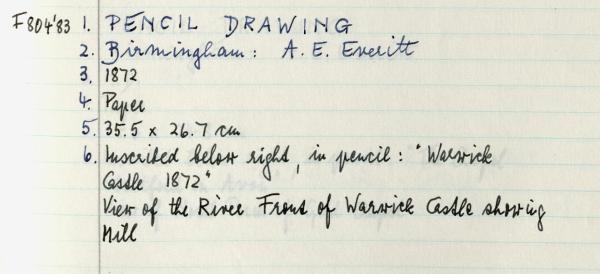 F804'83 1. PENCIL DRAWING
2. Birmingham: A. E. Everitt
3. 1872
4. Paper
5. 35.5 x 26.7 cm
6. Inscribed below right, in pencil: "Warwick
Castle 1872"
View of the River Front of Warwick Castle showing
Mill